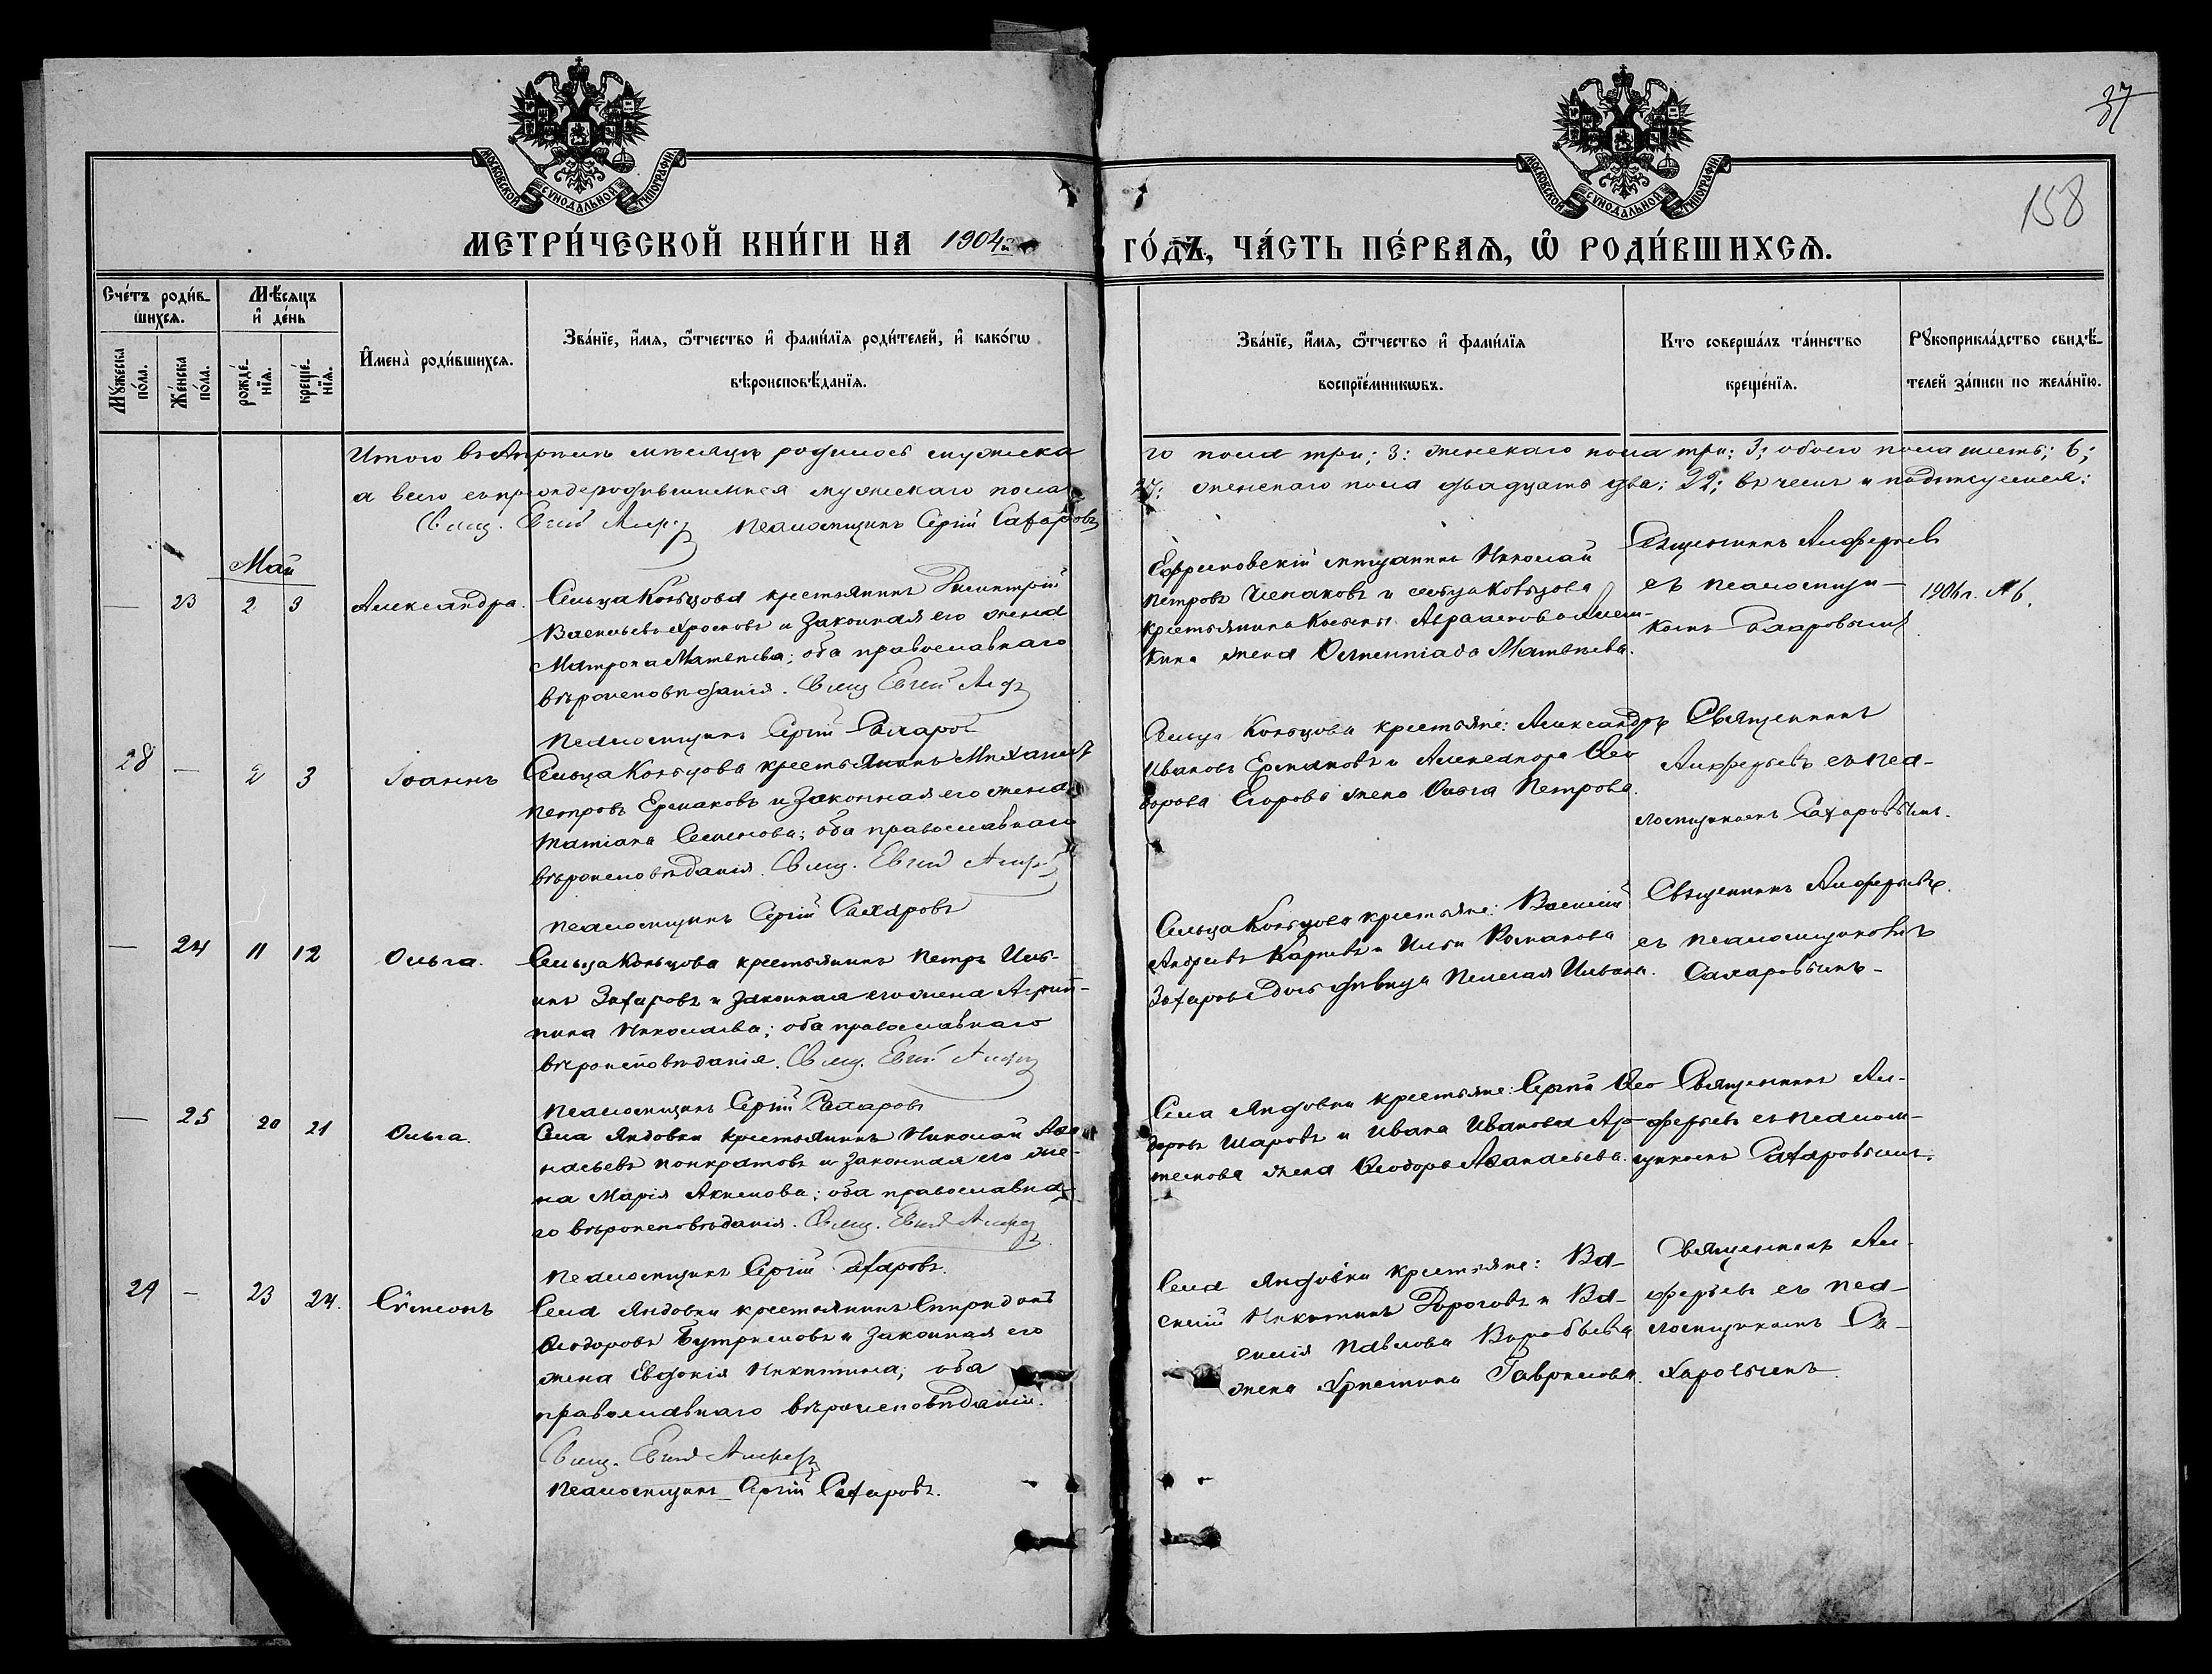 37
158
МОСКОВСКОЙ СѴНОДАЛЬНОЙ ТИПОГРАФІИ.
МОСКОВСКОЙ СѴНОДАЛЬНОЙ ТИПОГРАФІИ.
МЕТРИ́ЧЕСКОЙ КНИ́ГИ НА 1904 ГО́ДЪ, ЧА́СТЬ ПЕ́РВАѦ, Ѡ҆ РОДИ́ВШИХСѦ.
Сче́тъ роди́в-
шихсѧ.
Мѣ́сѧцъ
и҆ де́нь
Мꙋ́жеска
по́ла.
Же́нска
по́ла.
рожде́-
нїѧ.
креще́-
нїѧ.
И҆мена̀ роди́вшихсѧ.
Зва́нїе, и҆́мѧ, ѻ҆́тчество и҆ фами́лїѧ роди́телей, и҆ како́гѡ
вѣроисповѣ́данїѧ.
Зва́нїе, и҆́мѧ, ѻ҆́тчество и҆ фами́лїѧ
воспрїе́мникѡвъ.
Кто̀ соверша́лъ та́инство
креще́нїѧ.
Рꙋкоприкла́дство свидѣ́-
телей за́писи по жела́нїю.
Итого въ Апрѣлѣ мѣсяцѣ родилось мужска
го пола три; 3: женскаго пола три; 3; обоего пола шесть; 6;
а всего съ прежде родившимися мужскаго пола
27: женскаго пола двадцать два: 22; въ чемъ и подпишемся:
Свящ. Евгеній Псаломщикъ Сергій Сахаровъ
Май
— 23 2 3 Александра.
Сельца Кольцова крестьянинъ Димитрій
Васильевъ и законная его жена
Матрона Матѳеева; оба православнаго
вѣроисповѣданія. Свящ. Евгеній
Псаломщикъ Сергій Сахаровъ
Ефремовскій мѣщанинъ Николай
Петровъ и сельца Кольцова
крестьянина
жена Олимпіада Матѳеева.
Священникъ Алферьевъ
съ псаломщи-
комъ Сахаровымъ
1906 г. № 6.
28 — 2 3 Іоаннъ
Сельца Кольцова крестьянинъ Михаилъ
Петровъ Ермаковъ и законная его жена
Татіана Семенова; оба православнаго
вѣроисповѣданія. Свящ. Евгеній
Псаломщикъ Сергій Сахаровъ
Сельца Кольцова крестьяне: Александръ
Ивановъ Ермаковъ и Александра Ѳео
дорова Егорова жена Ольга Петрова.
Священникъ
Алферьевъ съ пса-
ломщикомъ Сахаровымъ.
— 24 11 12 Ольга.
Сельца Кольцова крестьянинъ Петръ Иль-
инъ Захаровъ и законная его жена Агрип-
пина Николаева; оба православнаго
вѣроисповѣданія. Свящ. Евгеній
Псаломщикъ Сергій Сахаровъ
Сельца Кольцова крестьяне: Василій
Андреевъ Карпевъ и Ильи Романова
Захарова дочь дѣвица Пелагія Ильина.
Священникъ Алферьевъ
съ псаломщикомъ
Сахаровымъ
— 25 20 21 Ольга.
Села Яндовки крестьянинъ Николай Аѳа
насьевъ Понкратовъ и законная его же-
на Марія Акимова; оба православна-
го вѣроисповѣданія. Свящ. Евгеній
Псаломщикъ Сергій Сахаровъ.
Села Яндовки крестьяне: Сергій Ѳео
доровъ Шаровъ и Ивана Иванова Ар-
темова жена Ѳеодора Аѳанасьева.
Священникъ Ал-
ферьевъ съ псалом-
щикомъ Сахаровымъ.
29 — 23 24. Сѵмеонъ
Села Яндовки крестьянинъ Спиридонъ
Ѳеодоровъ Бутримовъ и законная его
жена Евдокія Никитина; оба
православнаго вѣроисповѣданія.
Свящ. Евгеній
Псаломщикъ Сергій Сахаровъ.
Села Яндовки крестьяне: Ва-
силій Никитинъ Дороговъ и Ва-
силія Павлова Воробьева
жена Христина Гаврилова.
Священникъ Ал-
ферьевъ съ пса-
ломщикомъ Са-
харовымъ